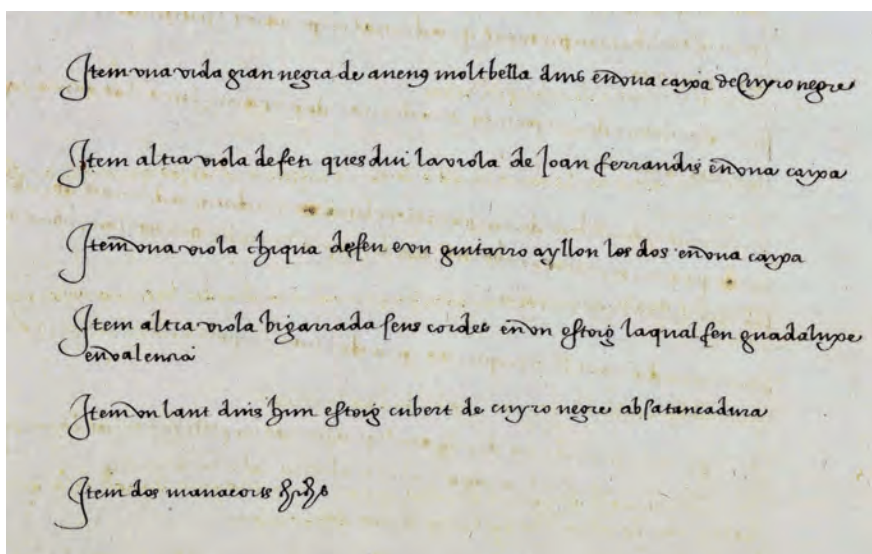 Item vna viola gran negra de aneng molt bella dins en vna caixa de cuyro negre
Item altra viola de fen ques diu la viola de Joan ferrandis en vna caixa
Item vna viola chiqua de fen e vn guitarro ayllon los dos en vna caixa
Item altra viola bigarrada sens cordes en vn estoig laqual feu guadalupe
en valencia
Item vn laut dins hun estoig cubert de cuyro negre ab sa tancadura
Item dos manacorts